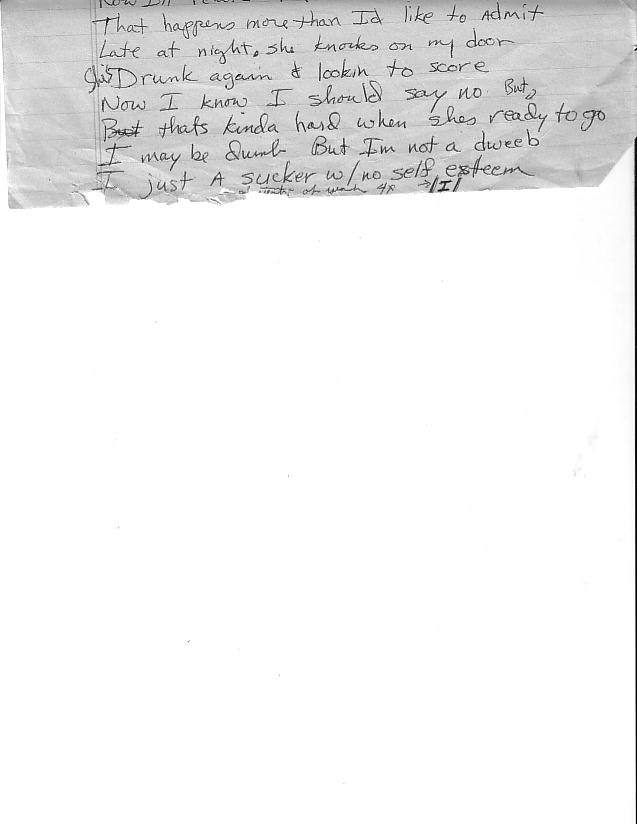 That happens more than Id like to Admit
Late at night, she knocks on my door
Drunk again & lookin to score
Now I know I should say no. But,
But thats kinda hard when shes ready to go
I may be dumb But Im not a dweeb
I just A sucker w/no self esteem
4x